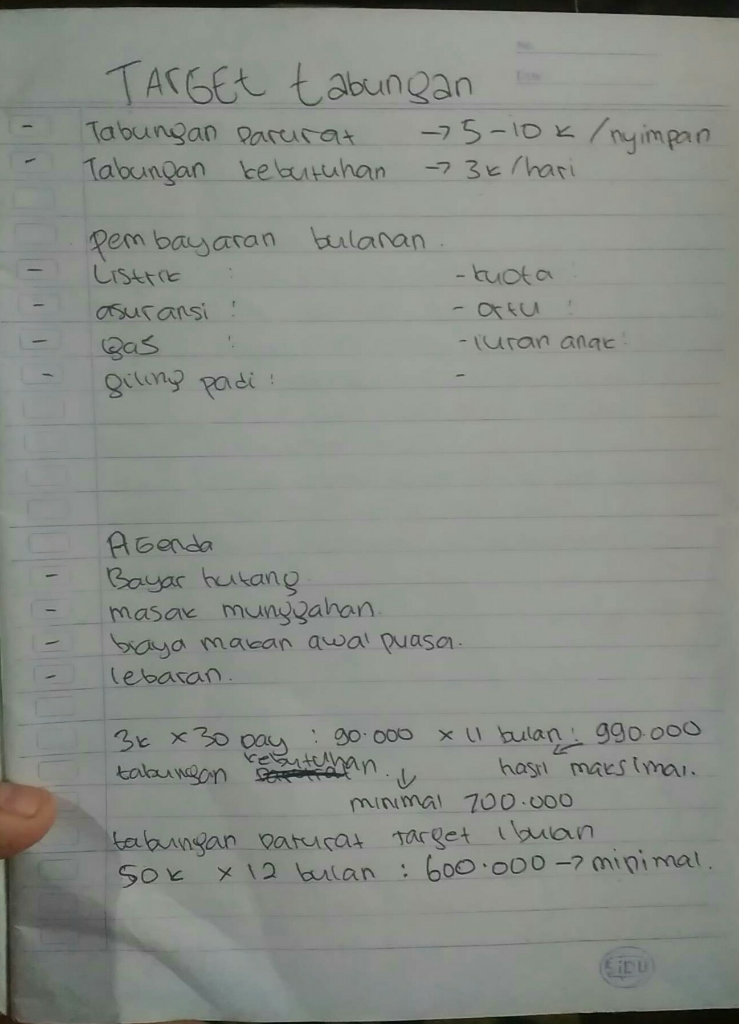 TARGET tabungan
- Tabungan Darurat → 5-10 k /nyimpan
- Tabungan kebutuhan → 3k/hari
pembayaran bulanan.
- Listrik : - kuota :
- asuransi : - ortu :
- gas : - iuran anak :
- giling padi : -
AGenda
- Bayar hutang
- masak munggahan.
- biaya makan awal puasa.
- lebaran.
3k × 30 Day : 90.000 × 11 bulan : 990.000
tabungan kebutuhan. hasil maksimal.
minimal 700.000
tabungan Darurat Target 1 bulan
50k × 12 bulan : 600.000 → minimal.
SiDU